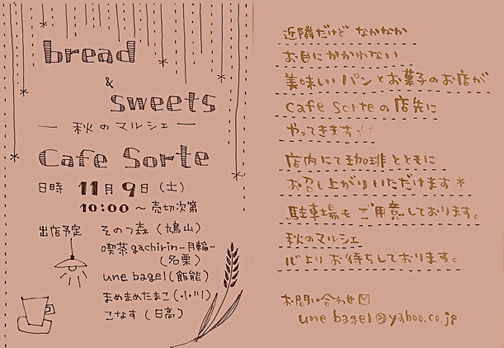 bread
&
sweets
秋のマルシェ
Cafe Sorte
日時 11月9日(土)
10:00〜売切次第
出店予定 そのつ森(鳩山)
喫茶gachirin-月輪-
(名栗)
une bagel(飯能)
おめめたまこ(小川)
こなす(日高)
近隣だけど なかなか
お目にかかれない
美味しいパンとお菓子のお店が
Cafe Sorteの店先に
やってきます
店内にて珈琲とともに
お召し上がりいただけます*
駐車場もご用意しております。
秋のマルシェ
心よりお待ちしております。
お問い合わせ
une bagel@yahoo.co.jp